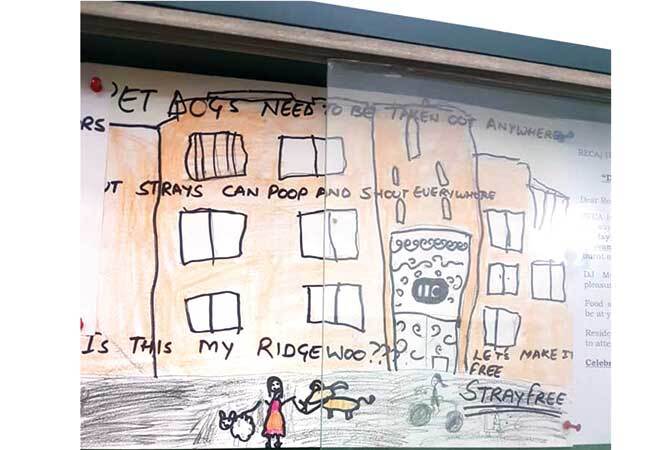 'ET DOGS NEED TO BE TAKEN OUT ANYWHERE
RS
UT STRAYS CAN POOP AND SHOUT EVERYWHERE
11C
IS THIS MY RIDGEWOO????
LET'S MAKE IT
FREE
STRAY FREE
RECA/
"D
Dear Re
DJ M
pleasur
Food s
be at y
Reside
to atte
Celebr